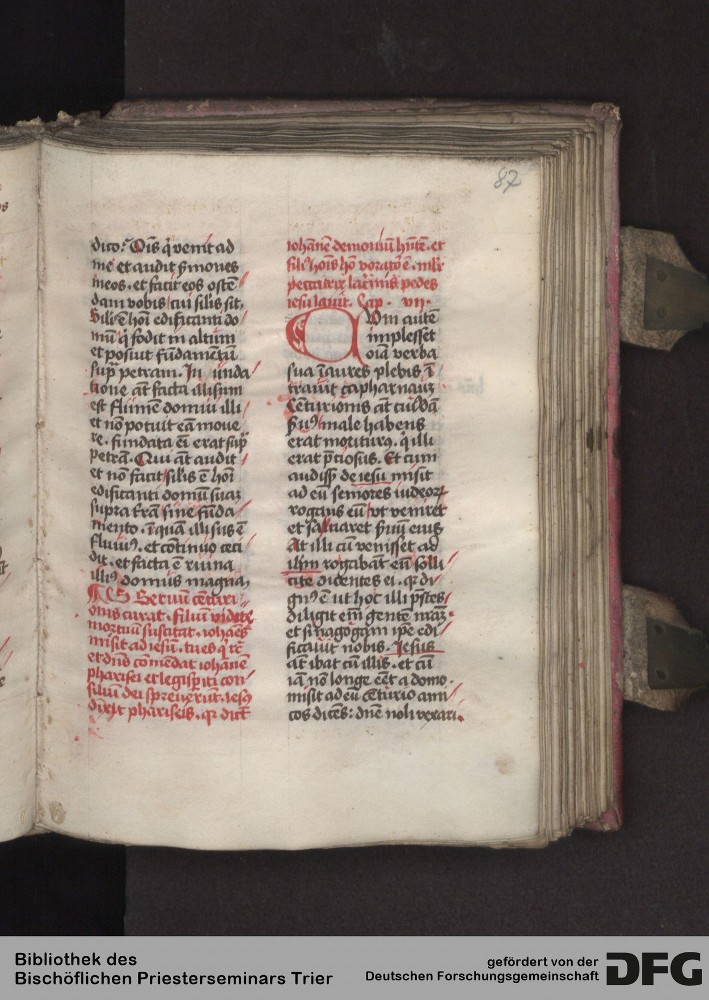 87
dico. Oīs q̄ venit ad
me et audit ẜmones
meos. et facit eos ostē
dam vobis cui silis sit.
Silis ē hoī edificanti do
mū q̄ fodit in altum
et posuit fūdamentū
sup̄ petram. In unda
tione aūt facta illisum
est flumē domui illi
et nō potuit eā moue
re. fundata eī erat sup̄
petrā. Qui aūt audit
et nō facit silis ē hoī
edificanti domū suaꝫ
supra t̄rā sine fūda
mento. ī quā illisus ē
fluuiꝰ. et cōtinuo ceci
dit. et facta ē ruina
illiꝰ domus magna.
Seruū cēturi
onis curat. filiū vidue
mortuū suscitat. iohānes
misit ad iesū. tu es q̄
et dn̄d cōmēdat iohānē
pharisei et legisp̄iti con
siliū dei spreuerūt. iesꝰ
dixit phariseis. qꝛ dicūt
iohānē demoniū hn̄tē. et
filiꝰ hoīs hō vorator ē. mlr̄
peccatrix lacrimis pedes
iesu lauit. Cap. vii.
Cum autē
implesset
oīa verba
sua ī aures plebis. ī
trauit capharnauꝫ
Centurionis aūt cuiusdā
ẜuꝰ male habens
erat moriturꝰ. q̄ illi
erat p̄ciosus. Et cum
audisset de iesu misit
ad eū seniores iudeoꝝ
rogans eū vt veniret
et saluaret ẜuū eius
At illi cū venissēt ad
ihm rogabāt eū solli
cite dicentes ei. qꝛ di
gnꝰ ē ut hoc illi p̄stes
diligit em̄ gentē n̄am.
et sinagogam ip̄e edi
ficauit nobis. Jesus
aūt ibat cū illis. et cū
iā nō longe eēt a domo.
misit ad eū cēturio ami
cos dicēs: dn̄e noli vexari.
Bibliothek des
Bischöflichen Priesterseminars Trier
gefördert von der
Deutschen Forschungsgemeinschaft
DFG